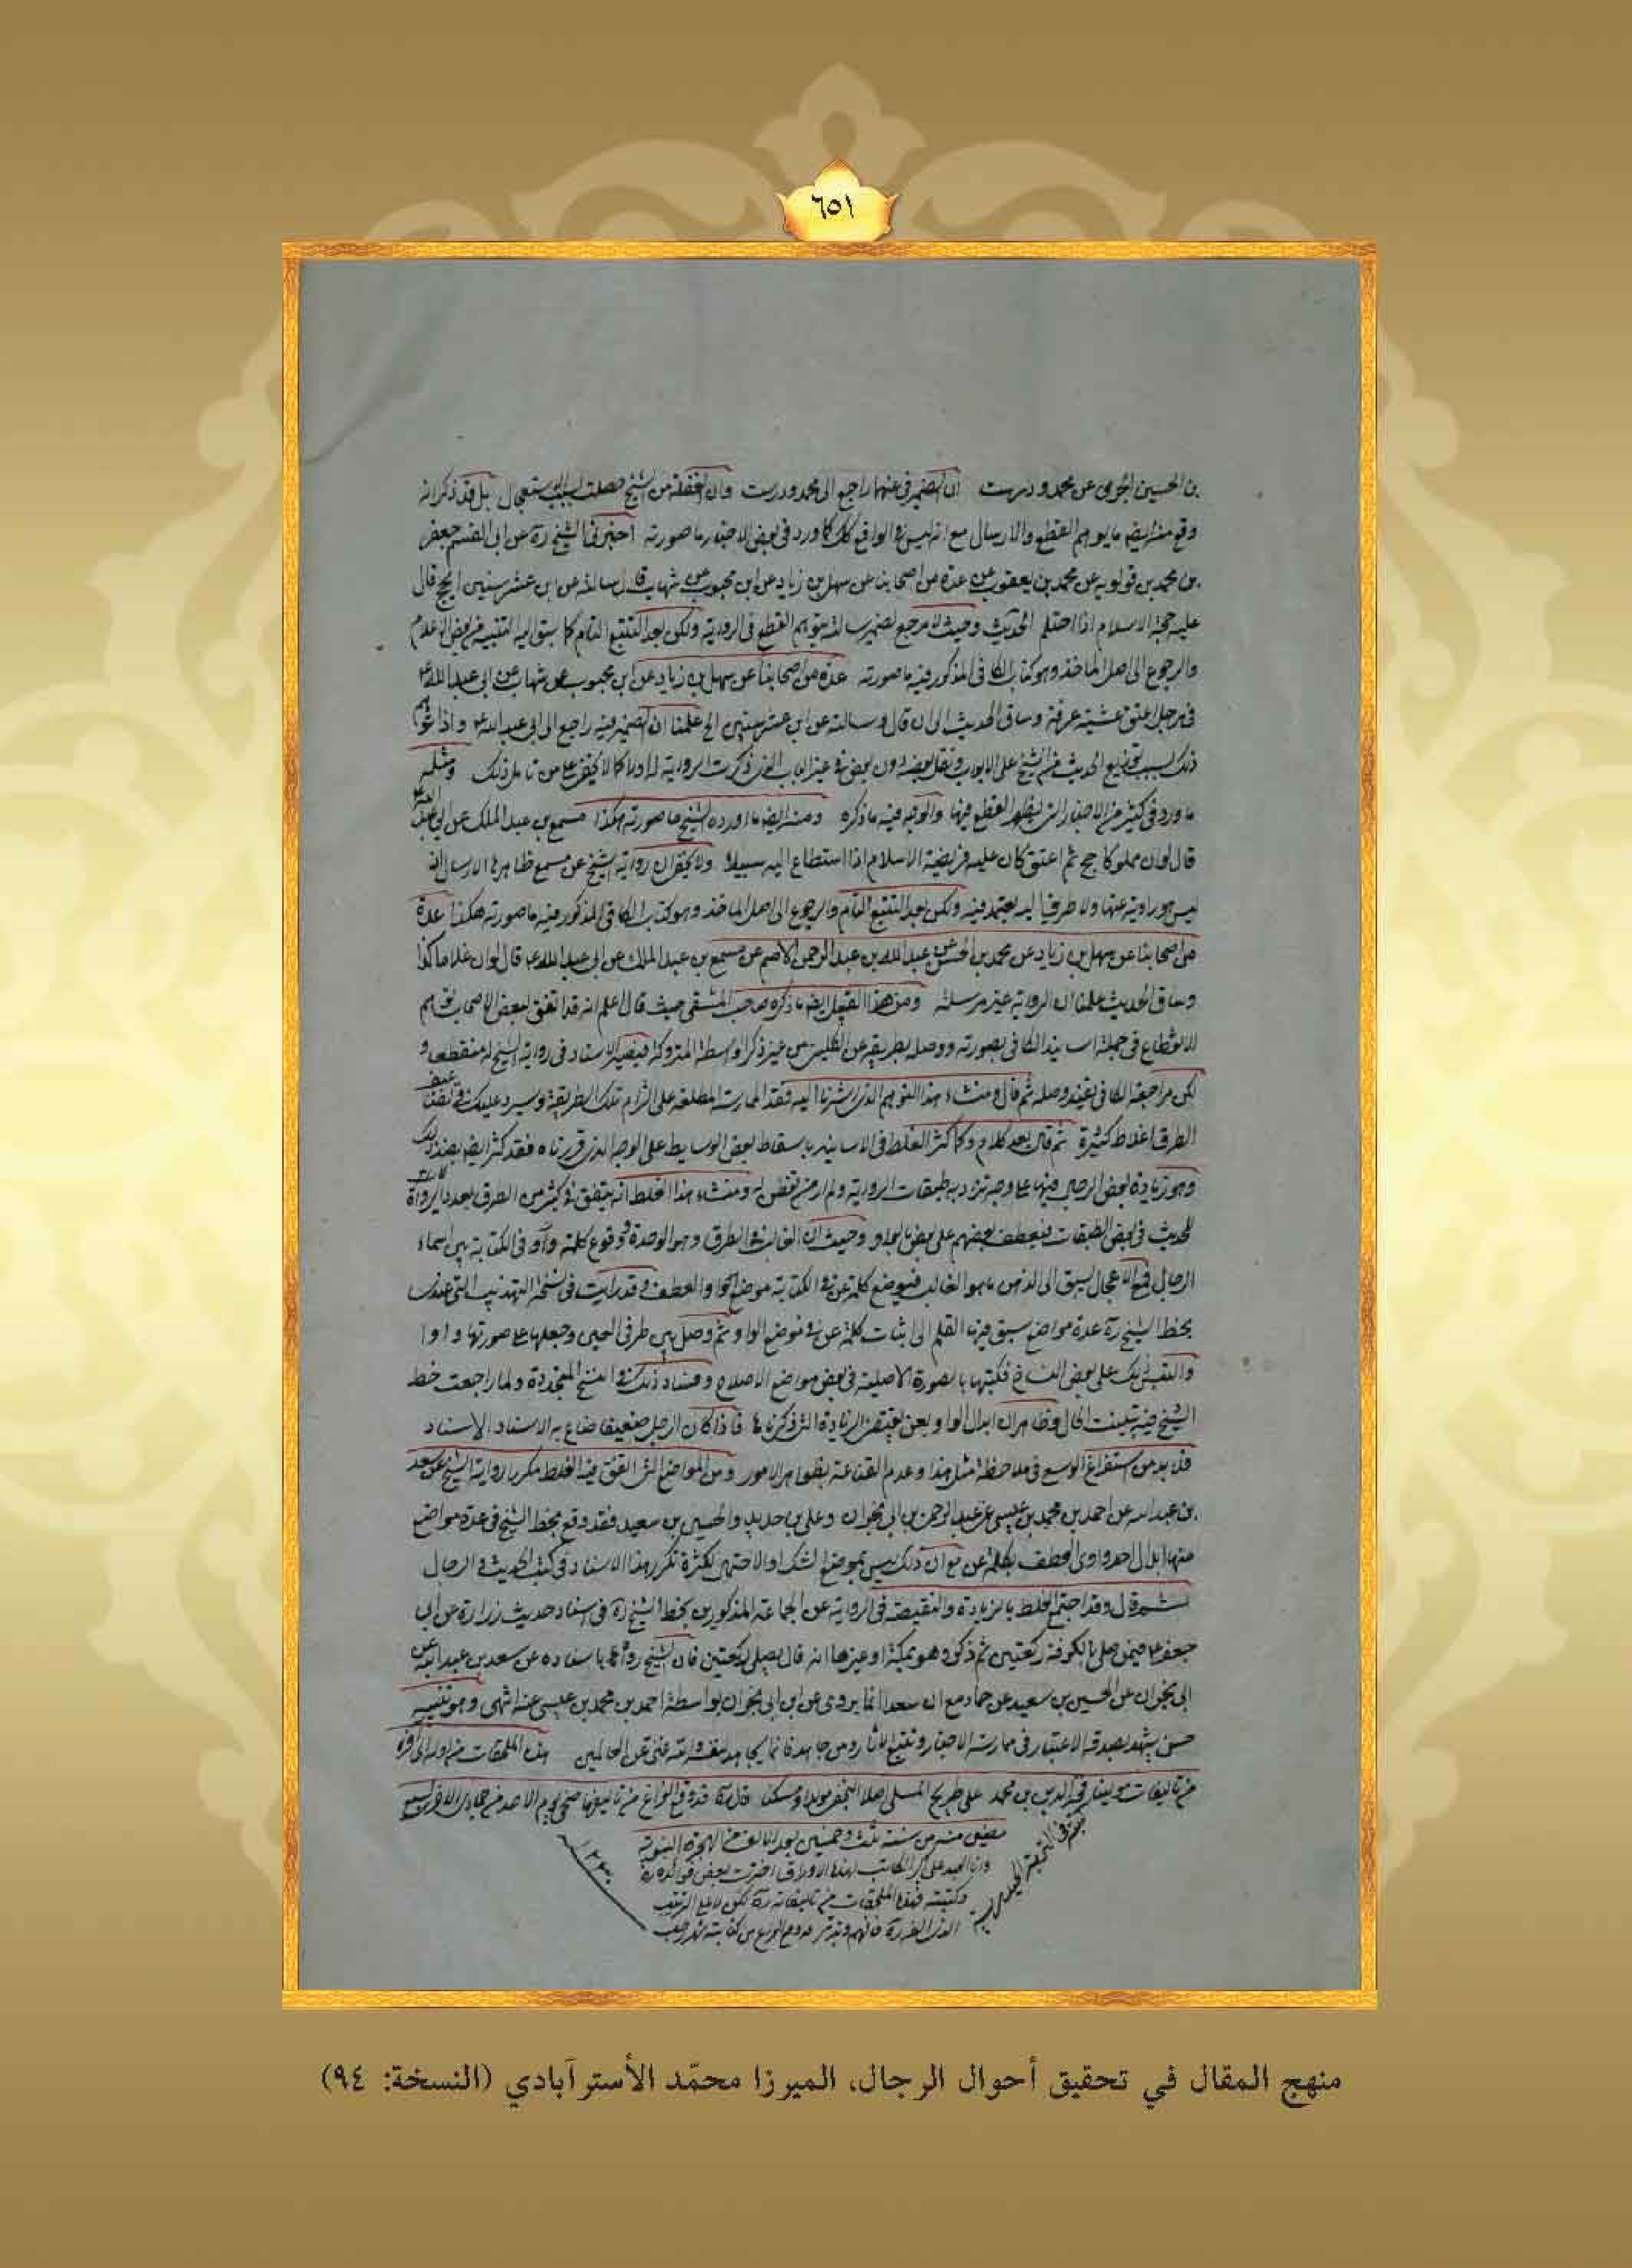 ٦٥١
بن الحسين الجرمي عن محمد ودرست ان الضمير في عنهما راجع الى محمد ودرست وان الغفلة من الشيخ حصلت بل قد ذكر انه
وقع منه ايضا ما يوهم القطع والارسال مع انه ليس في الواقع كذلك كما ورد في بعض الاخبار ما صورته اخبرني الشيخ ره عن ابي القسم جعفر
بن محمد بن قولويه عن محمد بن يعقوب عن عدة من اصحابنا عن سهل بن زياد عن ابن محبوب عن شهاب قال سالته عن ابن عشر سنين يحج قال
عليه حجة الاسلام اذا احتلم الحديث وحيث لا مرجع لضمير سالته يتوهم القطع في الرواية ولكن بعد التتبع التام كما سبق اليه التنبيه من بعض الاعلام
والرجوع الى اصل الماخذ وهو كتاب الكافي المذكور فيه ما صورته عدة من اصحابنا عن سهل بن زياد عن ابن محبوب عن شهاب عن ابي عبد الله ع
في رجل اعتق عشية عرفة وساق الحديث الى ان قال وسالته عن ابن عشر سنين الخ علمنا ان الضمير فيه راجع الى ابي عبد الله ع واذا
ذلك بسبب توزيع الحديث من الشيخ على الابواب ونقل بعضه دون بعض في غير الباب الذي ذكرت الرواية له اولا كما لا يخفى على من تامل ذلك ومثله
ما ورد في كثير من الاخبار التي يظهر القطع فيها والوجه فيه ما ذكره ومنه ايضا ما اورده الشيخ ما صورته هكذا مسمع بن عبد الملك عن ابي عبد الله
قال لو ان مملوكا حج ثم اعتق كان عليه فريضة الاسلام اذا استطاع اليه سبيلا ولا يخفى ان رواية الشيخ عن مسمع ظاهرها الارسال اذ
ليس هو راويه عنها ولا طريقا اليه يعتمد فيه ولكن بعد التتبع التام والرجوع الى اصل الماخذ وهو كتاب الكافي المذكور فيه ما صورته هكذا عدة
من اصحابنا عن سهل بن زياد عن محمد بن الحسن عن عبد الله بن عبد الرحمن الاصم عن مسمع بن عبد الملك عن ابي عبد الله ع قال لو ان غلاما
وساق الحديث علمنا ان الرواية غير مرسلة ومن هذا القبيل ايضا ما ذكره صاحب المنتقى حيث قال اعلم انه قد اتفق لبعض الاصحاب توهم
الانقطاع في جملة اسانيد الكافي بصورته ووصله بطريقه عن الكليني من غير ذكر لواسطة المتروكة فيصير الاسناد في رواية الشيخ له منقطعا و
لكن مراجعة الكافي تفيد وصله ثم قال ومنشاء هذا التوهم الذي اشرنا اليه فقد الممارسة المطلعة على التزام تلك الطريقة وسيرد عليك في تضاعيف
الطرق اغلاط كثيرة ثم قال بعد كلام وكما كثر الغلط في الاسانيد باسقاط بعض الوسايط على الوجه الذي قررناه فقد كثر ايضا بضد ذلك
وهو زيادة بعض الرجال فيها على وجه تزداد به طبقات الرواية ولم ار من تفطن له ومنشاء هذا الغلط انه يتفق في كثير من الطرق تعدد الرواة
للحديث في بعض الطبقات فيعطف بعضهم على بعض بالواو وحيث ان الغالب في الطرق وهو الوحدة ووقوع كلمة عن في الكتابة بين اسماء
الرجال فمع الاعجال يسبق الى الذهن ما هو الغالب فيوضع كلمة عن في الكتابة موضع الواو العطف وقد رايت في نسخة التهذيب التي عندي
بخط الشيخ ره عدة مواضع سبق فيها القلم الى اثبات كلمة عن في موضع الواو ثم وصل بين طرفي العين وجعلها على صورتها واوا
والتبس ذلك على بعض النساخ فكتبها بالصورة الاصلية في بعض مواضع الاصلاح وفشا ذلك في النسخ المتجددة ولما راجعت خط
الشيخ فيه تبينت الحال وظاهر ان ابدال الواو بعن يقتضي الزيادة التي ذكرناها فاذا كان الرجل ضعيفا ضاع به الاسناد
فلا بد من استفراغ الوسع في ملاحظة مثل هذا وعدم القناعة بظواهر الامور ومن المواضع التي اتفق فيه الغلط مكررا رواية الشيخ عن سعد
بن عبد الله عن احمد بن محمد بن عيسى عن عبد الرحمن بن ابي نجران وعلي بن حديد والحسين بن سعيد فقد وقع بخط الشيخ في عدة مواضع
منها ابدال احد واوي العطف بكلمة عن مع ان ذلك ليس بموضع الشك او الاحتمال لكثرة تكرر هذا الاسناد في كتب الحديث والرجال
ثم قال وقد اجتمع الغلط بالزيادة والنقيصة في الرواية عن الجماعة المذكورين بخط الشيخ ره في اسناد حديث زرارة عن ابي
جعفر ع فيمن صلى بالكوفة ركعتين ثم ذكر وهو بمكة او غيرها انه قال يصلي ركعتين فان الشيخ رواه باسناده عن سعد بن عبد الله عن
ابي نجران عن الحسين بن سعيد عن حماد مع ان سعدا انما يروي عن ابن ابي نجران بواسطة احمد بن محمد بن عيسى عنه انتهى وهو تنبيه
حسن يشهد بصدقه الاعتبار في ممارسة الاخبار وتتبع الآثار ومن جاهد فانما يجاهد لنفسه والله غني عن العالمين هذه الملحقات من اوله الى اخره
من تاليفات مولينا فخر الدين بن محمد علي طريح المسلمي اصلا النجفي مولدا ومسكنا قال ره قد وقع الفراغ من تاليفها ضحى يوم الاحد من جمادى
مضين منه من سنة ثلث وخمسين بعد الالف من الهجرة النبوية
وانا العبد الكاتب لهذه الاوراق اخترت بعض فوائده ره
وكتبته في هذه الملحقات من تاليفاته ره لكن لا على الترتيب
منهج المقال في تحقيق أحوال الرجال، الميرزا محمّد الأسترآبادي (النسخة: ٩٤)